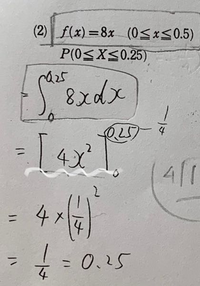 (2) f(x)=8x (0≦x≦0.5)
P(0≦X≦0.25)
= ∫₀^0.25 8x dx
= [4x²]₀^0.25 — 1/4
= 4 × (1/4)²
= 1/4 = 0.25